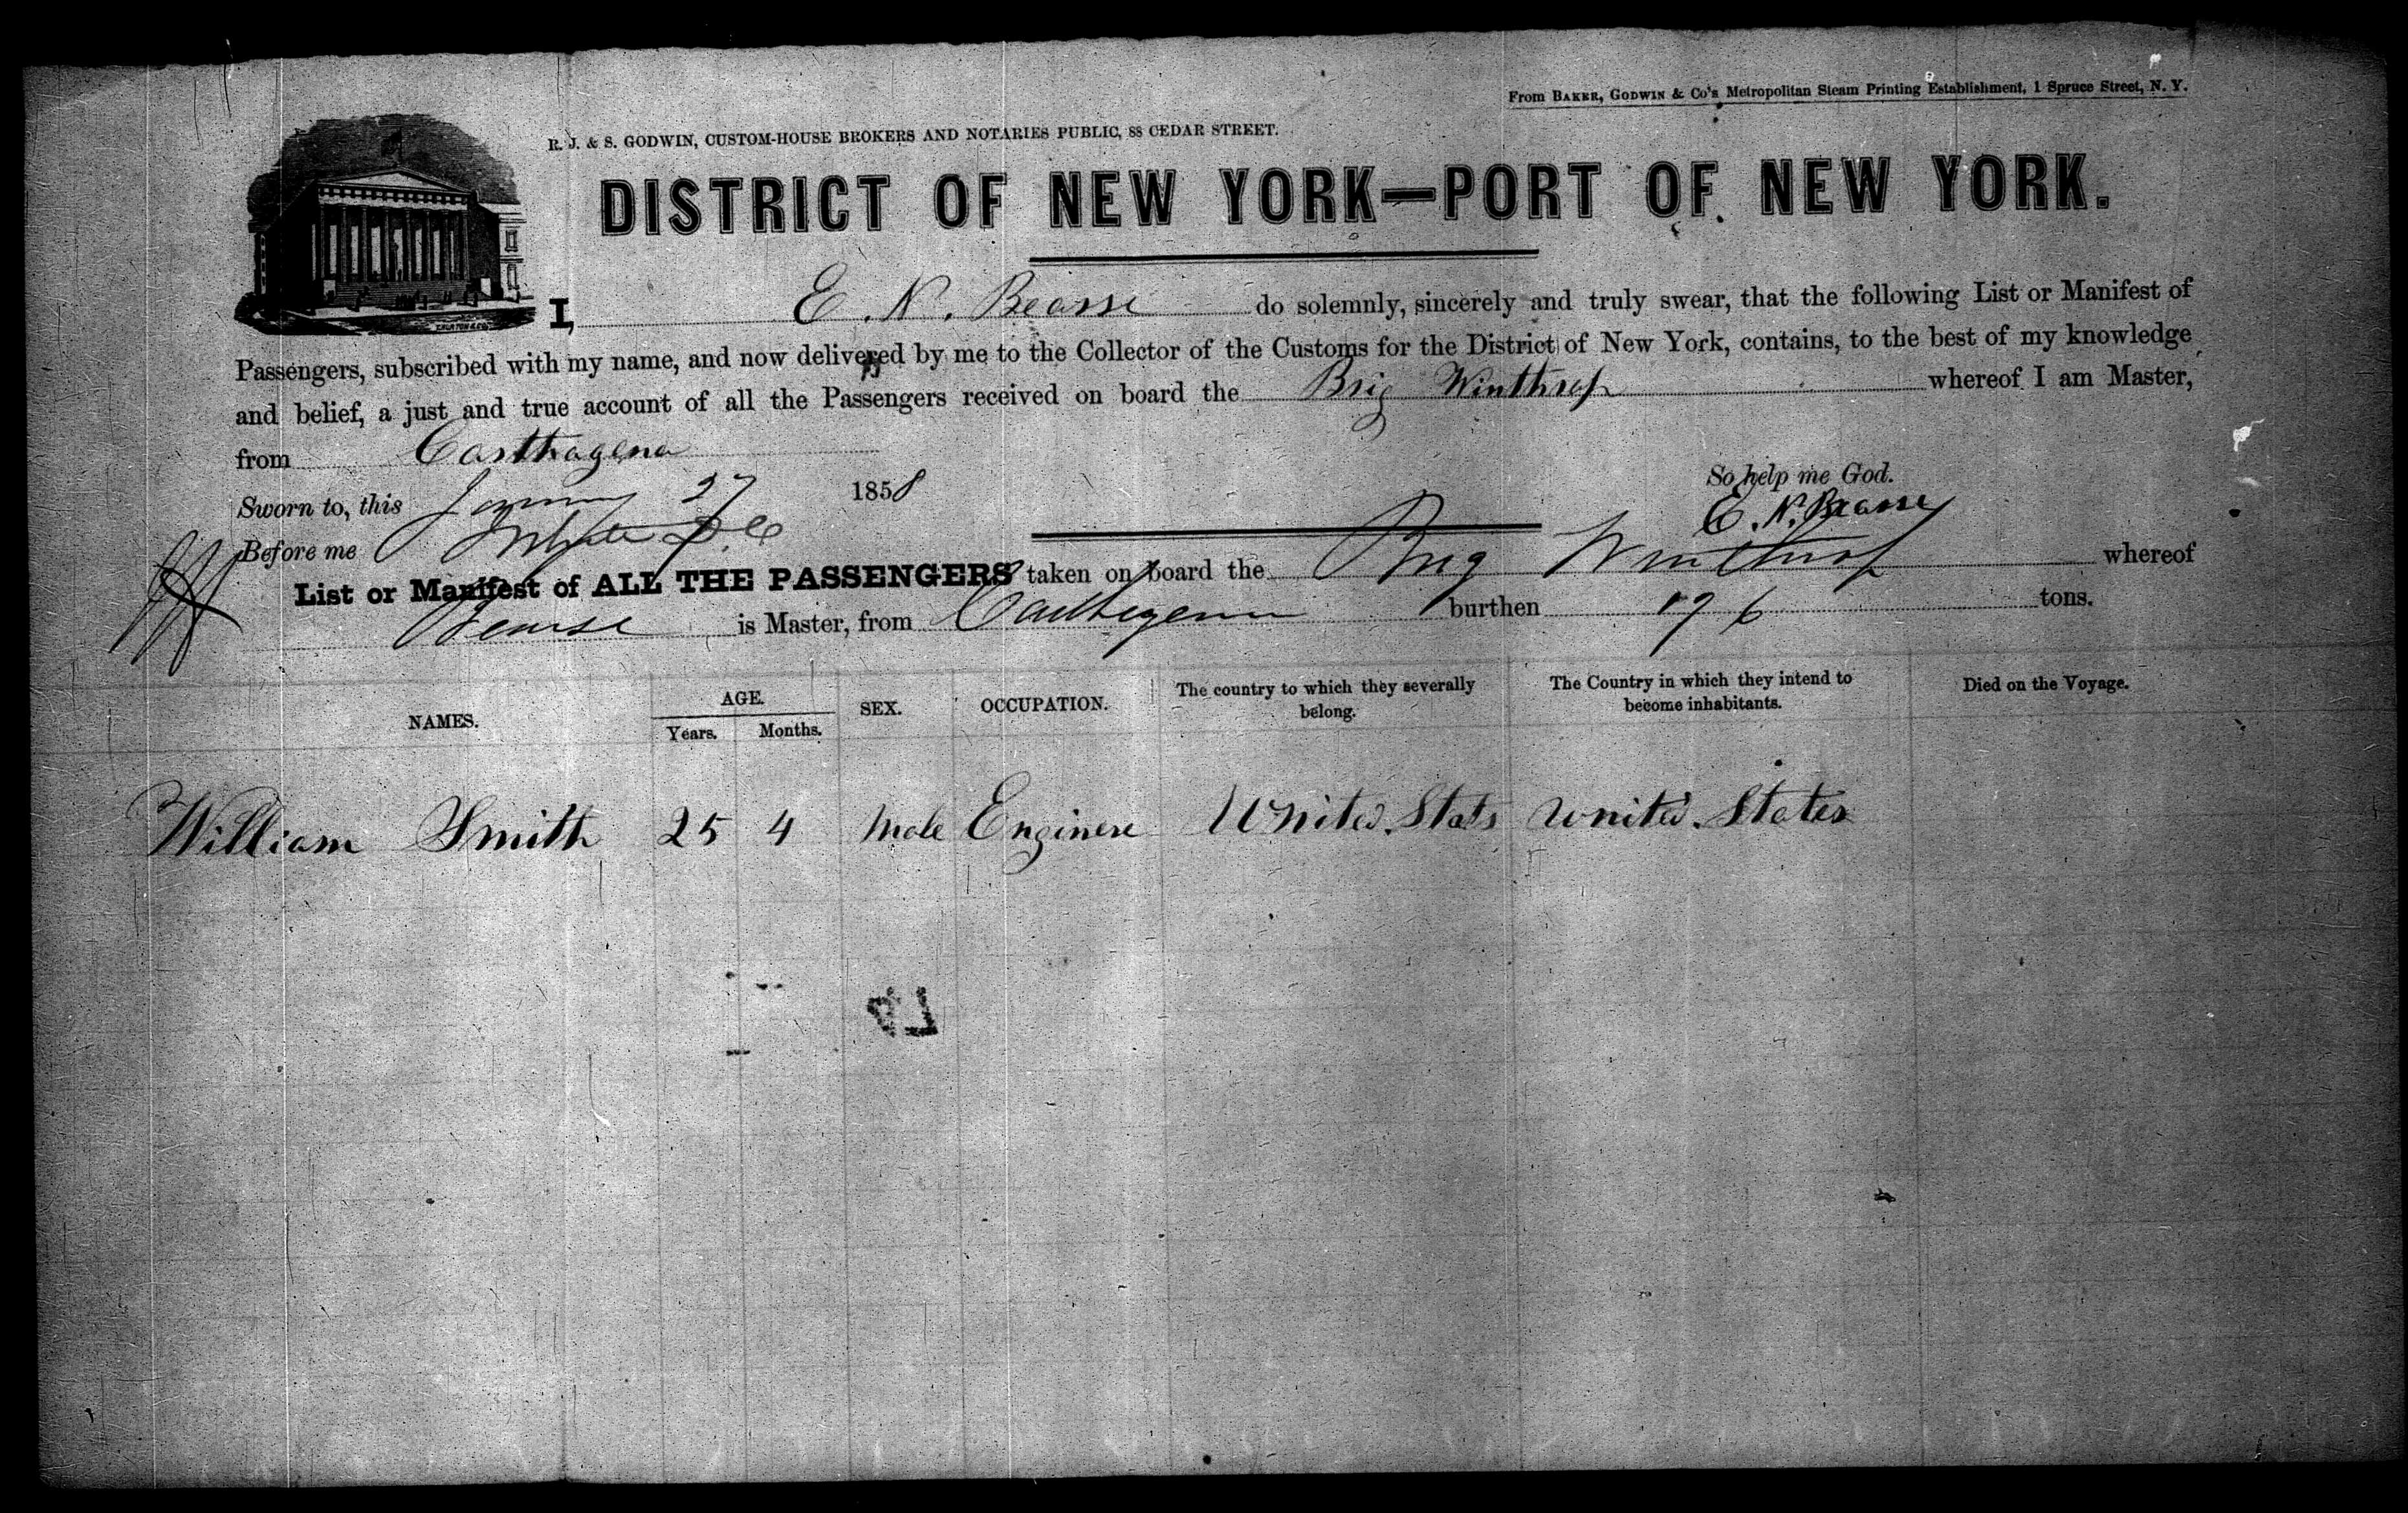 From BAKER, GODWIN & Co's Metropolitan Steam Printing Establishment, 1 Spruce Street, N. Y.
R. J. & S. GODWIN, CUSTOM-HOUSE BROKERS AND NOTARIES PUBLIC, 88 CEDAR STREET.
DISTRICT OF NEW YORK—PORT OF NEW YORK.
I, E. N. Bearse do solemnly, sincerely and truly swear, that the following List or Manifest of
Passengers, subscribed with my name, and now delivered by me to the Collector of the Customs for the District of New York, contains, to the best of my knowledge
and belief, a just and true account of all the Passengers received on board the Brig Winthrop whereof I am Master,
from Carthagena
So help me God.
Sworn to, this January 27 1858
E. N. Bearse
Before me
List or Manifest of ALL THE PASSENGERS taken on board the Brig Winthrop whereof
Bearse is Master, from Carthagena burthen 196 tons.
NAMES. AGE. Years. Months. SEX. OCCUPATION. The country to which they severally belong. The Country in which they intend to become inhabitants. Died on the Voyage.
William Smith 25 4 Male Enginere United Stats United States